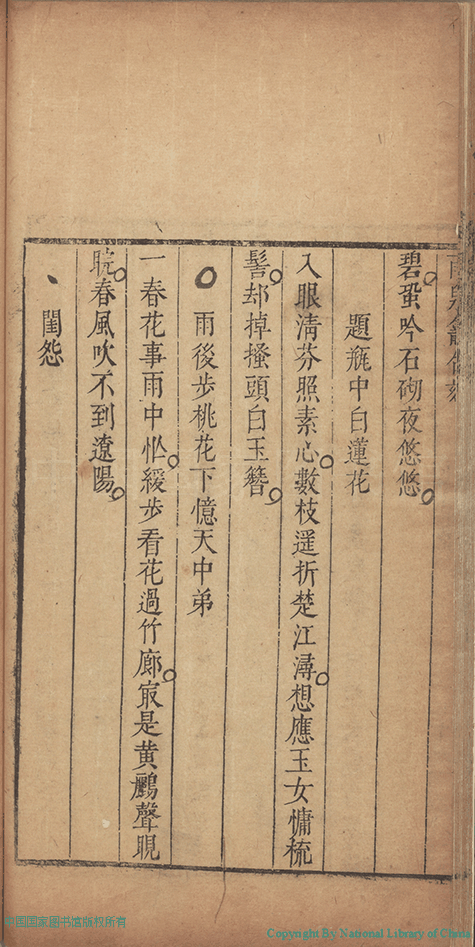 碧蛩吟石砌夜悠悠
題甁中白蓮花
入眼淸芬照素心數枝遥折楚江潯想應玉女慵梳
髻却掉搔頭白玉簪
雨後步桃花下憶天中弟
一春花事雨中忙緩步看花過竹廊㝡是黄鸝聲睍
睆春風吹不到遼陽
閨怨
中国国家图书馆版权所有
Copyright By National Library of China